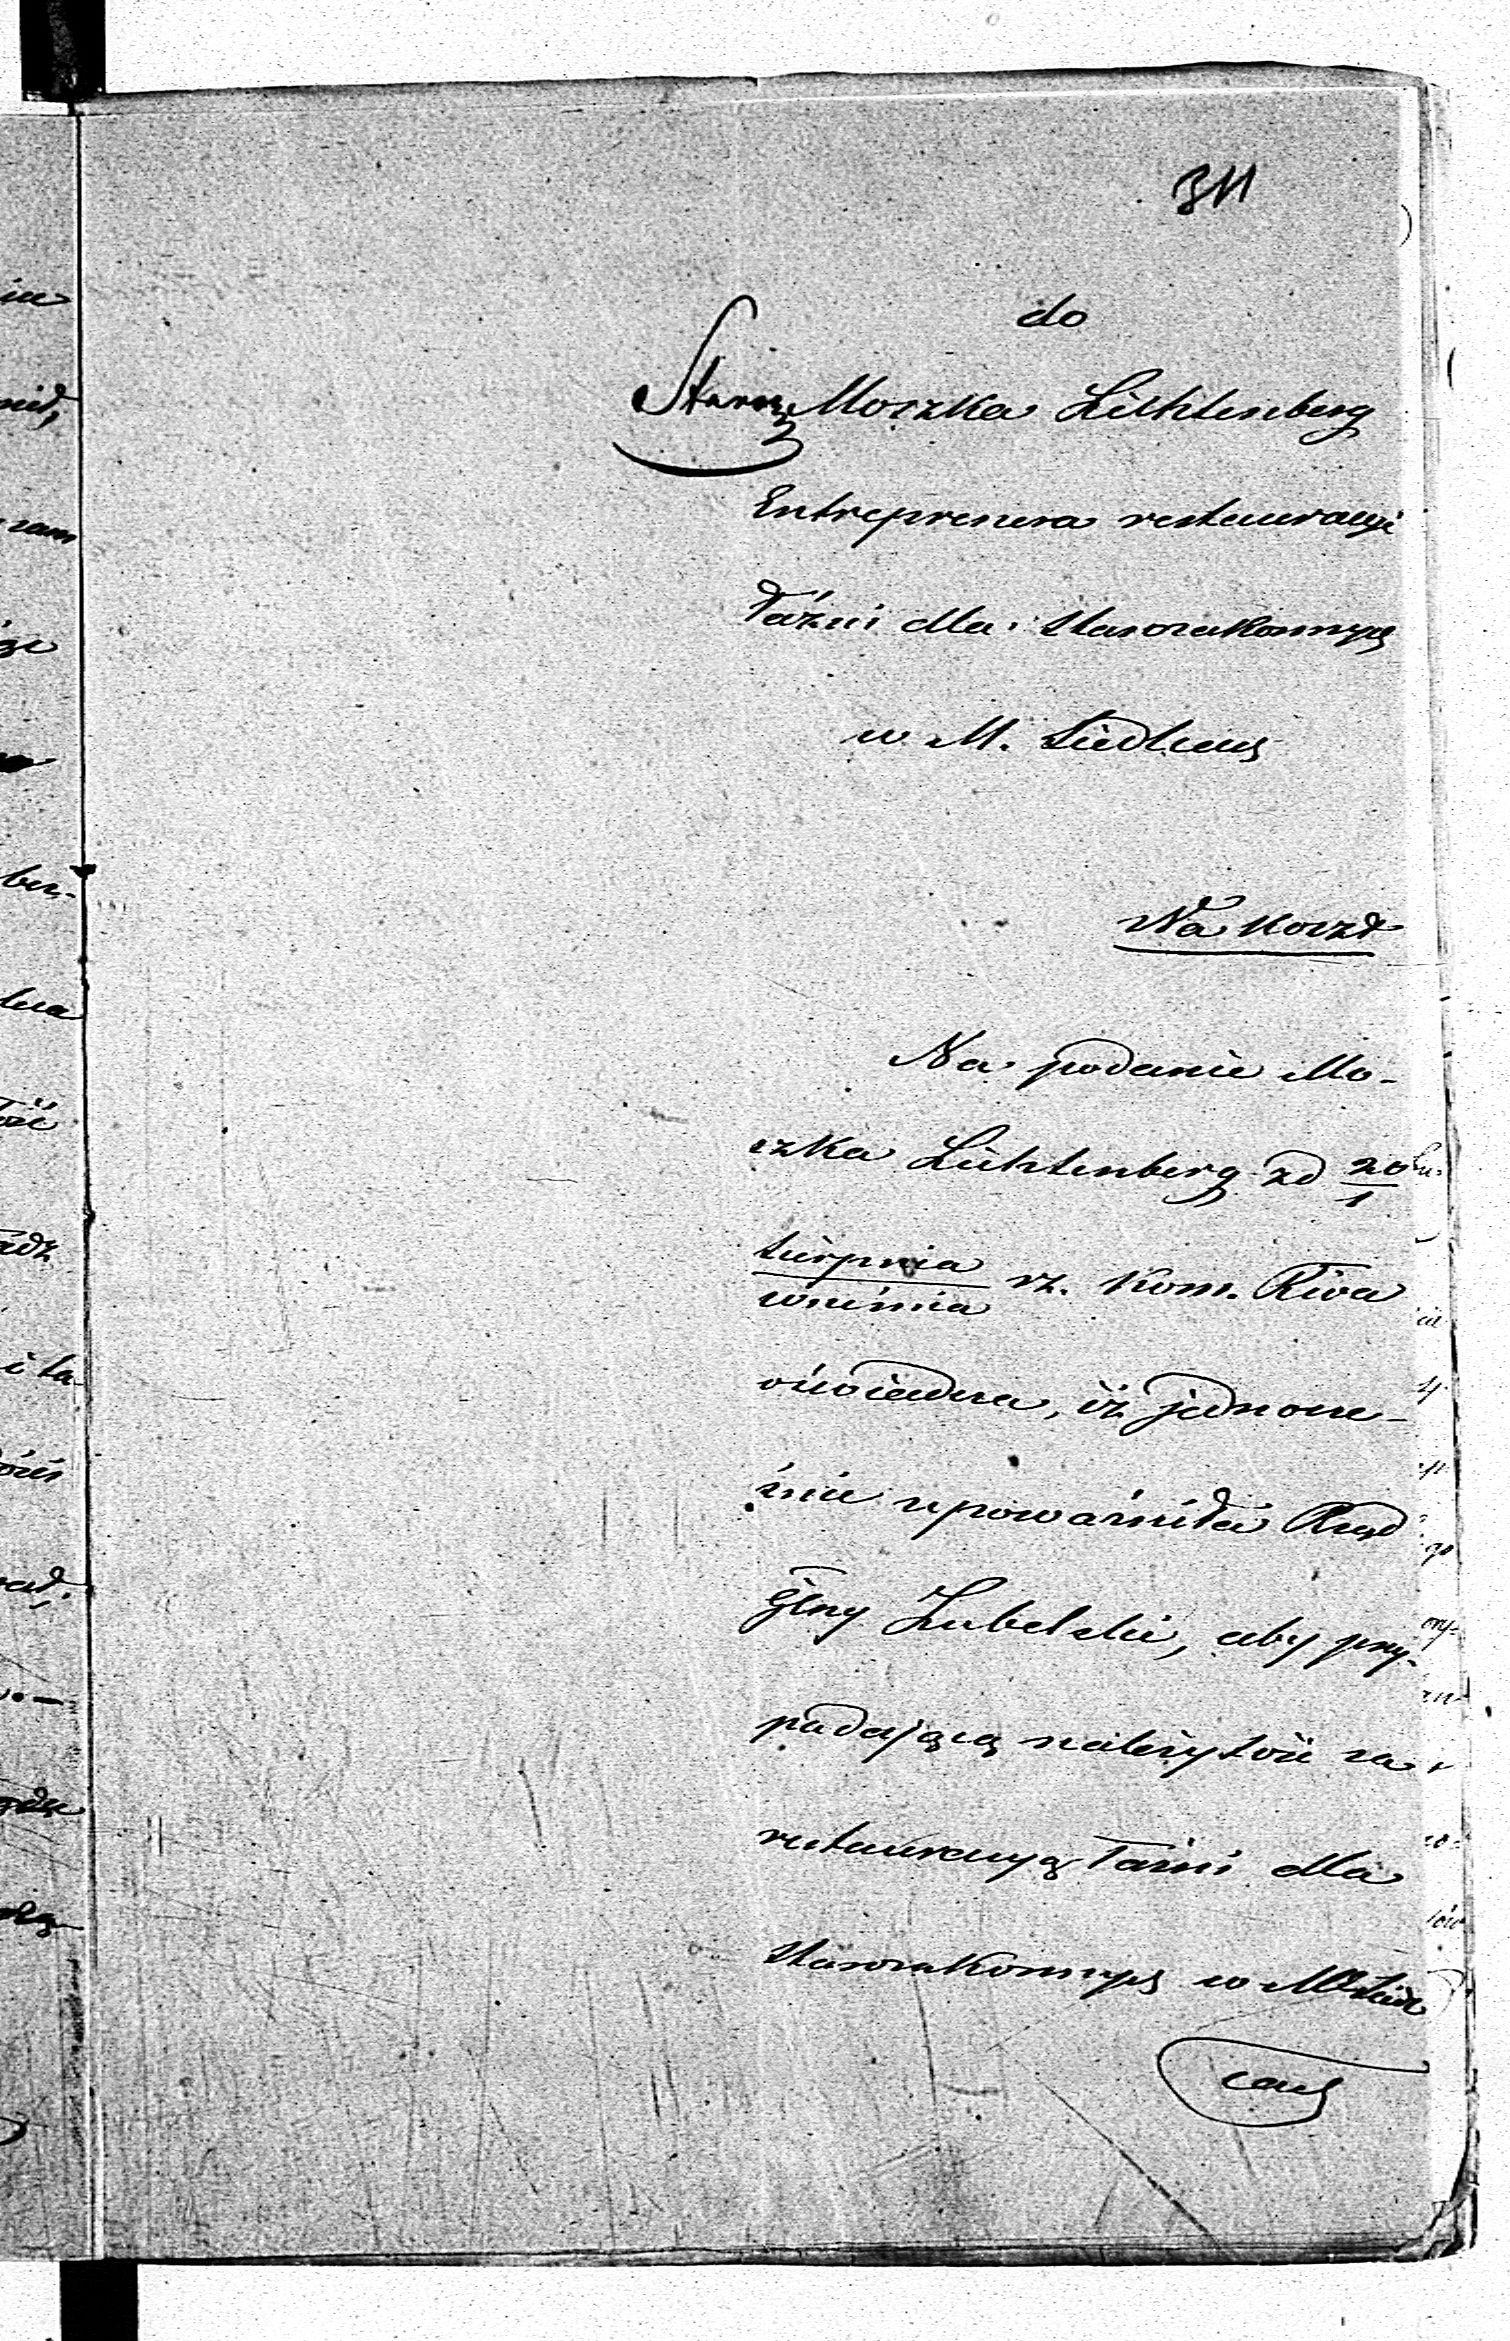 311
do
Staroz. Moszka Lichtenberg
Entreprenera restauracyi
Łaźni dla Starozakonnych
w M. Siedlcach
Na koszt
Na podanie Mo-
szka Lichtenberg z d 20/1
Sierpnia/Września rz. Kom. Rwa
oświadcza, iż jednocze-
śnie upoważniła Rząd
Glny Lubelski, aby przy-
padającą należytość za
restauracyą Łaźni dla
Starozakonnych w M. Siedl
cach